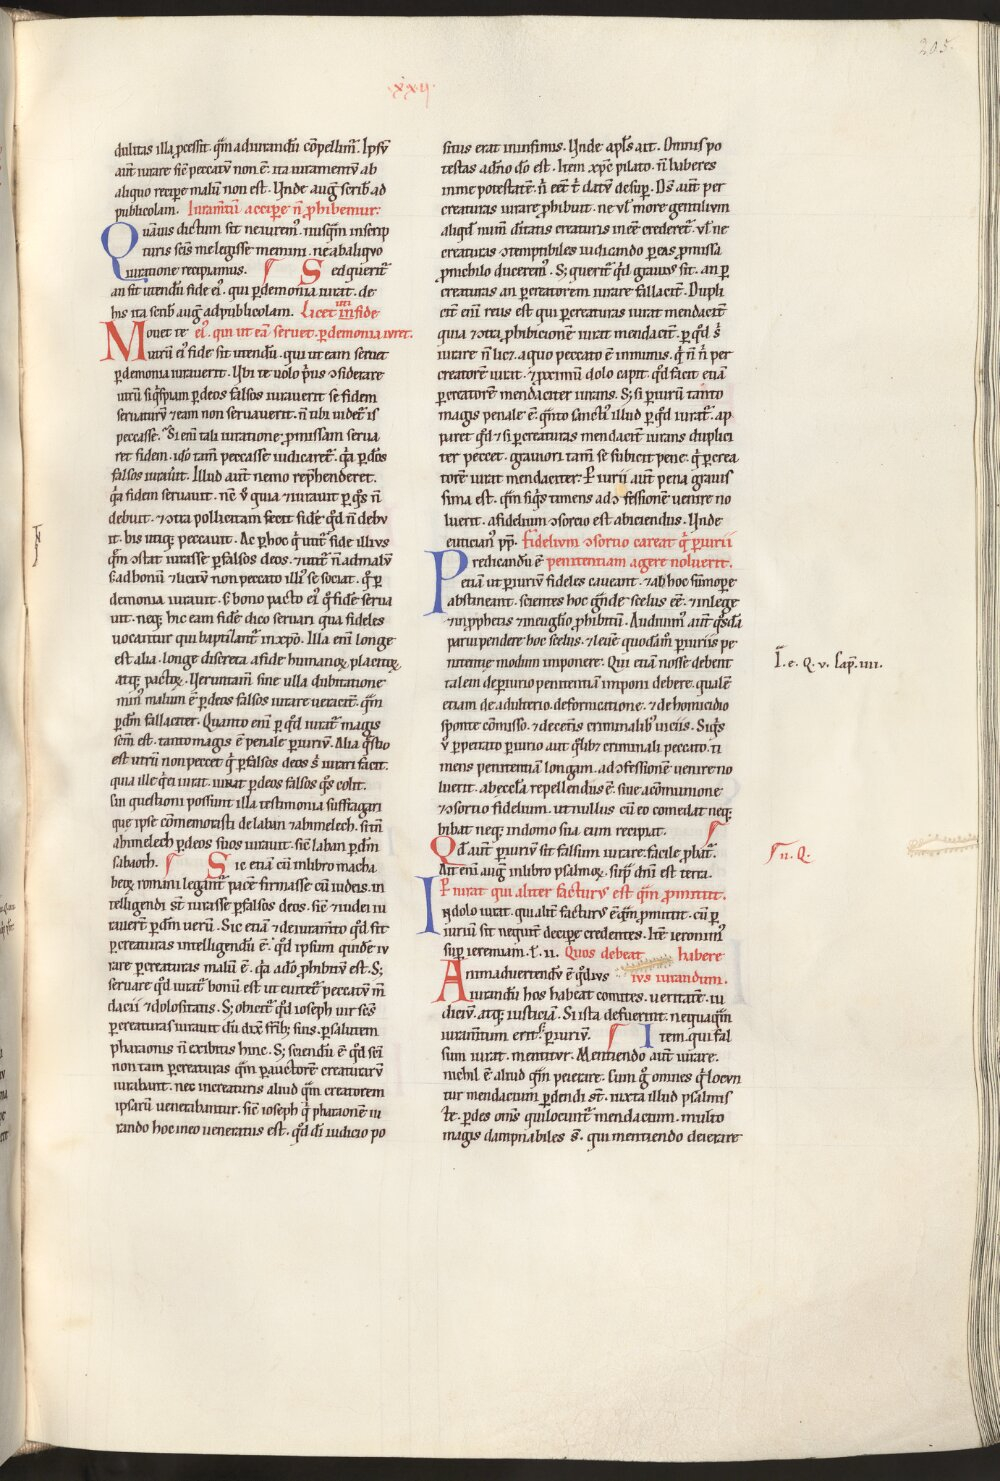 205.
.xxii.
dulitas illa p̄cessit. q̄m adiurandū cōpellim̄. Ipsū
aut̄ iurare sic̄ peccatū non ē. ita iuramentū ab
aliquo recip̄e malū non est. Unde auḡ scrib̄ ad
publicolam. Iuram̄tū accip̄e n̄ p̄hibemur.
Quāuis dictum sit ne iurem̄. nusq̄m in scrip
turis sc̄is me legisse memini. ne ab aliquo
iuratione recipiamus. Sed querit̄
an sit utendū fide ei. qui p̄ demonia iurat. de
his ita scrib̄ auḡ ad publicolam. Licet uti in fide
Mouet te ei. qui ut eā seruet. p̄ demonia iuret.
utrū ei fide sit utendū. qui ut eam seruet
p̄ demonia iurauerit. Ubi te uolo p̄us ↄsiderare
utrū si q̄spiam p̄ deos falsos iurauerit se fidem
seruaturū ⁊ eam non seruauerit. n̄ tibi uidet̄ is
peccasse. Si eni tali iuratione p̄missam serua
ret fidem. ido tam̄ peccasse iudicaret̄. q̄a p̄ d̄os
falsos iurauit. Illud aut̄ nemo rep̄henderet.
q̄a fidem seruauit. nc̄ ū quia ⁊ iurauit p̄ q̄s n̄
debuit. ⁊ ↄtra pollicitam fecit fidē q̄d n̄ debu
it. bis utiq; peccauit. Ac p̄ hoc q̄ utit̄ fide illius
q̄m ↄstat iurasse p̄ falsos deos. ⁊ utit̄ n̄ ad malū
s̄ ad bonū ⁊ licitū non peccato illi se sociat. q̄ p̄
demonia iurauit. s̄ bono pacto ei q̄ fidē serua
uit. neq; hic eam fidē dico seruari qua fideles
uocantur qui baptizant̄ in xp̄o. Illa eni longe
est alia. longe discreta a fide humanoꝝ placitoꝝ
atq; pactoꝝ. Ueruntam̄ sine ulla dubitatione
min̄ malum ē p̄ deos falsos iurare ueracit̄. q̄m
p̄ dm̄ fallaciter. Quanto eni p̄ q̄d iurat̄ magis
scm̄ est. tanto magis ē penale p̄iuriū. Alia q̄stio
est utrū non peccet q̄ p̄ falsos deos s̄ iurari facit.
quia ille q̄ ei iurat. iurat p̄ deos falsos q̄s colit.
cui questioni possunt illa testimonia suffragari
que ipse cōmemorasti de laban ⁊ abimelech. si tn̄
abimelech p̄ deos suos iurauit. sic̄ laban p̄ dm̄
sabaoth. Sic etiā cū in libro macha
beoꝝ romani legant̄ pacē firmasse cū iudeis. in
telligendi st̄ iurasse p̄ falsos deos. sic̄ ⁊ iudei iu
rauert̄ p̄ dm̄ uerū. Sic etiā ⁊ de iuram̄to q̄d fit
p̄ creaturas intelligendū ē. q̄d ipsum quidē iu
rare p̄ creaturas malū ē. q̄a a do p̄hibitū est. S;
seruare q̄d iurat̄ bonū est ut euitet̄ peccatū m̄
dacii ⁊ dolositatis. S; obicit̄ q̄d ioseph uir scs̄
p̄ creaturas iurauit dū dixt̄ frīb; suis. p̄ salutem
pharaonis n̄ exibitis hinc. S; sciendū ē q̄d sci
non tam p̄ creaturas q̄m p̄ auctorē creaturarū
iurabant. nec in creaturis aliud q̄m creatorem
ipsarū uenerabantur. sic̄ ioseph q̄ pharaonē iu
rando hoc in eo ueneratus est. q̄d dī iudicio po
situs erat in infimis. Unde apl̄s ait. Omnis po
testas a dn̄o do est. Item xp̄c pilato. n̄ haberes
in me potestatē. n̄ eēt t̄ datū desup̄. Ds̄ aut̄ per
creaturas iurare p̄hibuit. ne ul̄ more gentilium
aliq̄d num̄ diuitatis creaturis ineē crederet̄. ul̄ ne
creaturas ↄtemptibiles iudicando p̄ eas p̄missa
p̄ nichilo ducerem̄. S; querit̄ q̄d grauius sit. an p̄
creaturas an p̄ creatorem iurare fallacit̄. Dupli
cit̄ eni reus est qui p̄ creaturas iurat mendacit̄
quia ⁊ ↄtra p̄hibicionē iurat mendacit̄. p̄ q̄d s̄
iurare n̄ licꝫ. a quo peccato ē inmunis. q̄ n̄ n̄ per
creatorē iurat. ⁊ p̄ximū dolo capit. q̄d facit etiā
p̄ creatorē mendaciter iurans. S; si p̄iuriū tanto
magis penale ē. q̄nto sanctius illud p̄ q̄d iurat̄. ap
paret q̄d ⁊ si p̄ creaturas mendacit̄ iurans duplici
ter peccet. grauiori tam̄ se subicit pene. q̄ p̄ crea
torē iurat mendaciter. P̄iurii aut̄ pena grauis
sima est. q̄m siq̄s timens ad ↄfessionē uenire no
luerit. a fidelium ↄsorcio est abiciendus. Unde
eutician̄ pp̄. Fidelium ↄsortio careat q̄ p̄iurii
Predicandū ē penitentiam agere noluerit.
etiā ut p̄iuriū fideles caueant. ⁊ ab hoc sūmop̄e
abstineant. scientes hoc ḡnde scelus eē. ⁊ in lege
⁊ in p̄phetis ⁊ in euglio p̄hibitū. Audiuim̄ aut̄ q̄sdā
parui pendere hoc scelus. ⁊ leuē quodam̄ p̄iuriis pe
nitentie modum imponere. Qui etiā nosse debent
talem de p̄iurio penitentiā imponi debere. qualē
etiam de adulterio. de fornicatione. ⁊ de homicidio
sponte cōmisso. ⁊ de cet̄is criminalib; uiciis. Siq̄s
ū p̄petrato p̄iurio aut q̄libꝫ criminali peccato. ti
mens penitentiā longam. ad ↄfessionē uenire no
luerit. ab eccl̄a repellendus ē. siue a cōmunione
⁊ ↄsortio fidelium. ut nullus cū eo comedat neq;
bibat neq; in domo sua eum recipiat.
Qd̄ aut̄ p̄iuriū sit falsum iurare. facile p̄bat̄.
Ait eni auḡ in libro psalmoꝝ. sup̄ dn̄i est terra.
P̄iurat qui aliter facturus est q̄m p̄mittit.
In dolo iurat. qui alit̄ facturus ē q̄m p̄mittit. cū p̄
iurium sit nequit̄ decip̄e credentes. Itē ieronim̄
sup̄ ieremiam. l̄. ii. Quos debeat habere
Animaduertendū ē q̄d ius ius iurandum.
iurandū hos habeat comites. ueritatē. iu
diciū. atq; iusticiā. Si ista defuerint. nequaq̄m
iuram̄tum erit. s̄ p̄iuriū. Item. qui fal
sum iurat. mentitur. Mentiendo aut̄ iurare.
nichil ē aliud q̄m peierare. Cum g̊ omnes q̄ locun
tur mendacium p̄dendi st̄. iuxta illud psalmis
te. p̄des om̄s qui locunt̄ mendacium. multo
magis dampnabiles s̄. qui mentiendo deierare
I. e. Q. v. Cap̄. iiii.
n. Q.